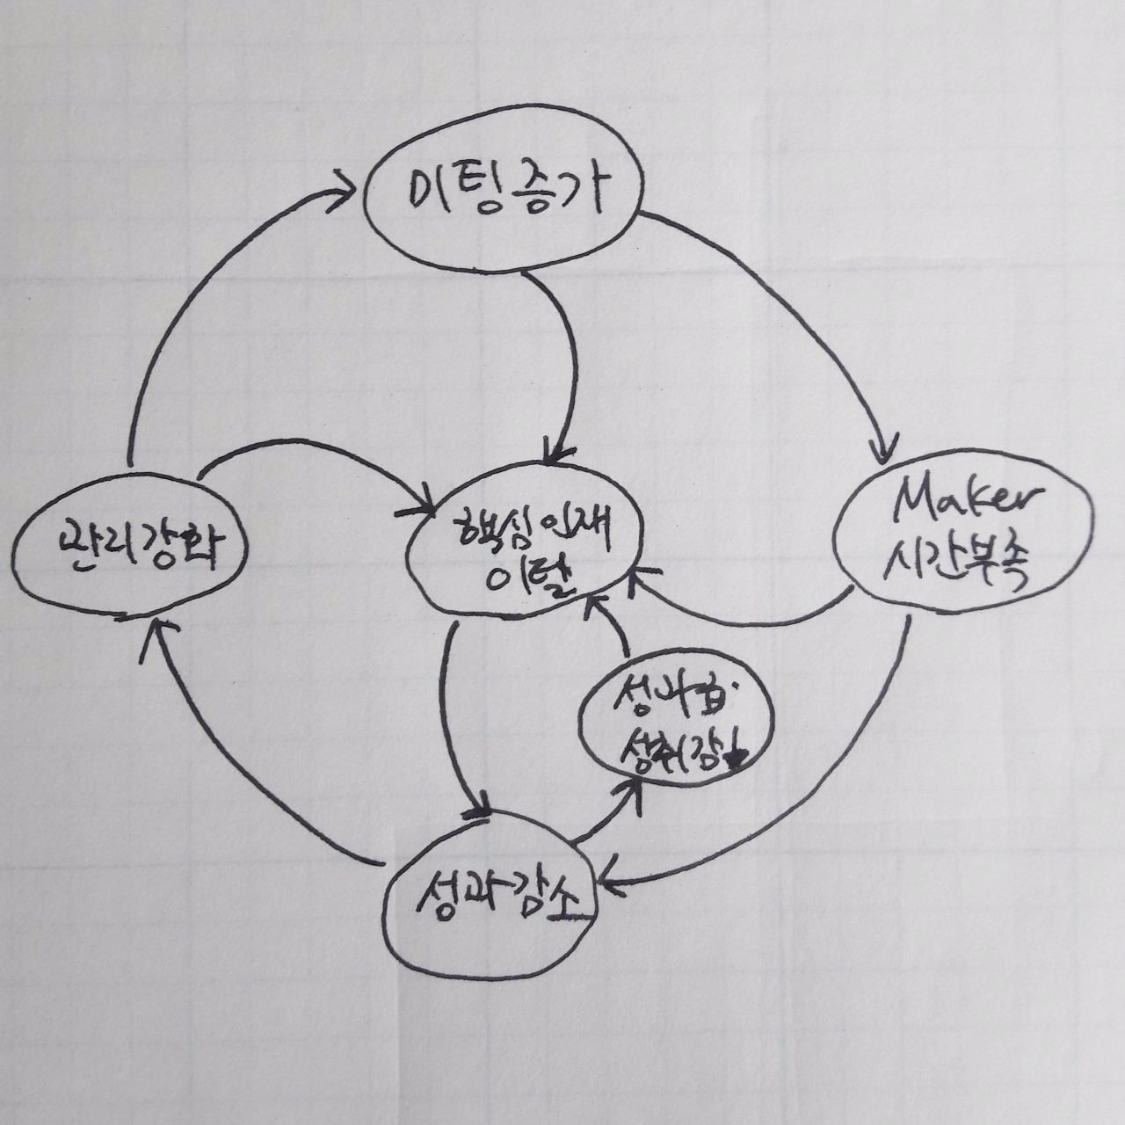 미팅증가
관리강화
핵심인재
이탈
Maker
시간부족
성과급·
성취감↓
성과감소